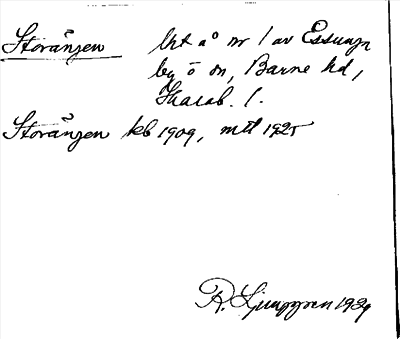 Storängen   Lht å nr 1 av Essunga
by o sn, Barne hd,
Skarab. l.
Storängen kb 1909, mtl 1925
R. Ljunggren 1929